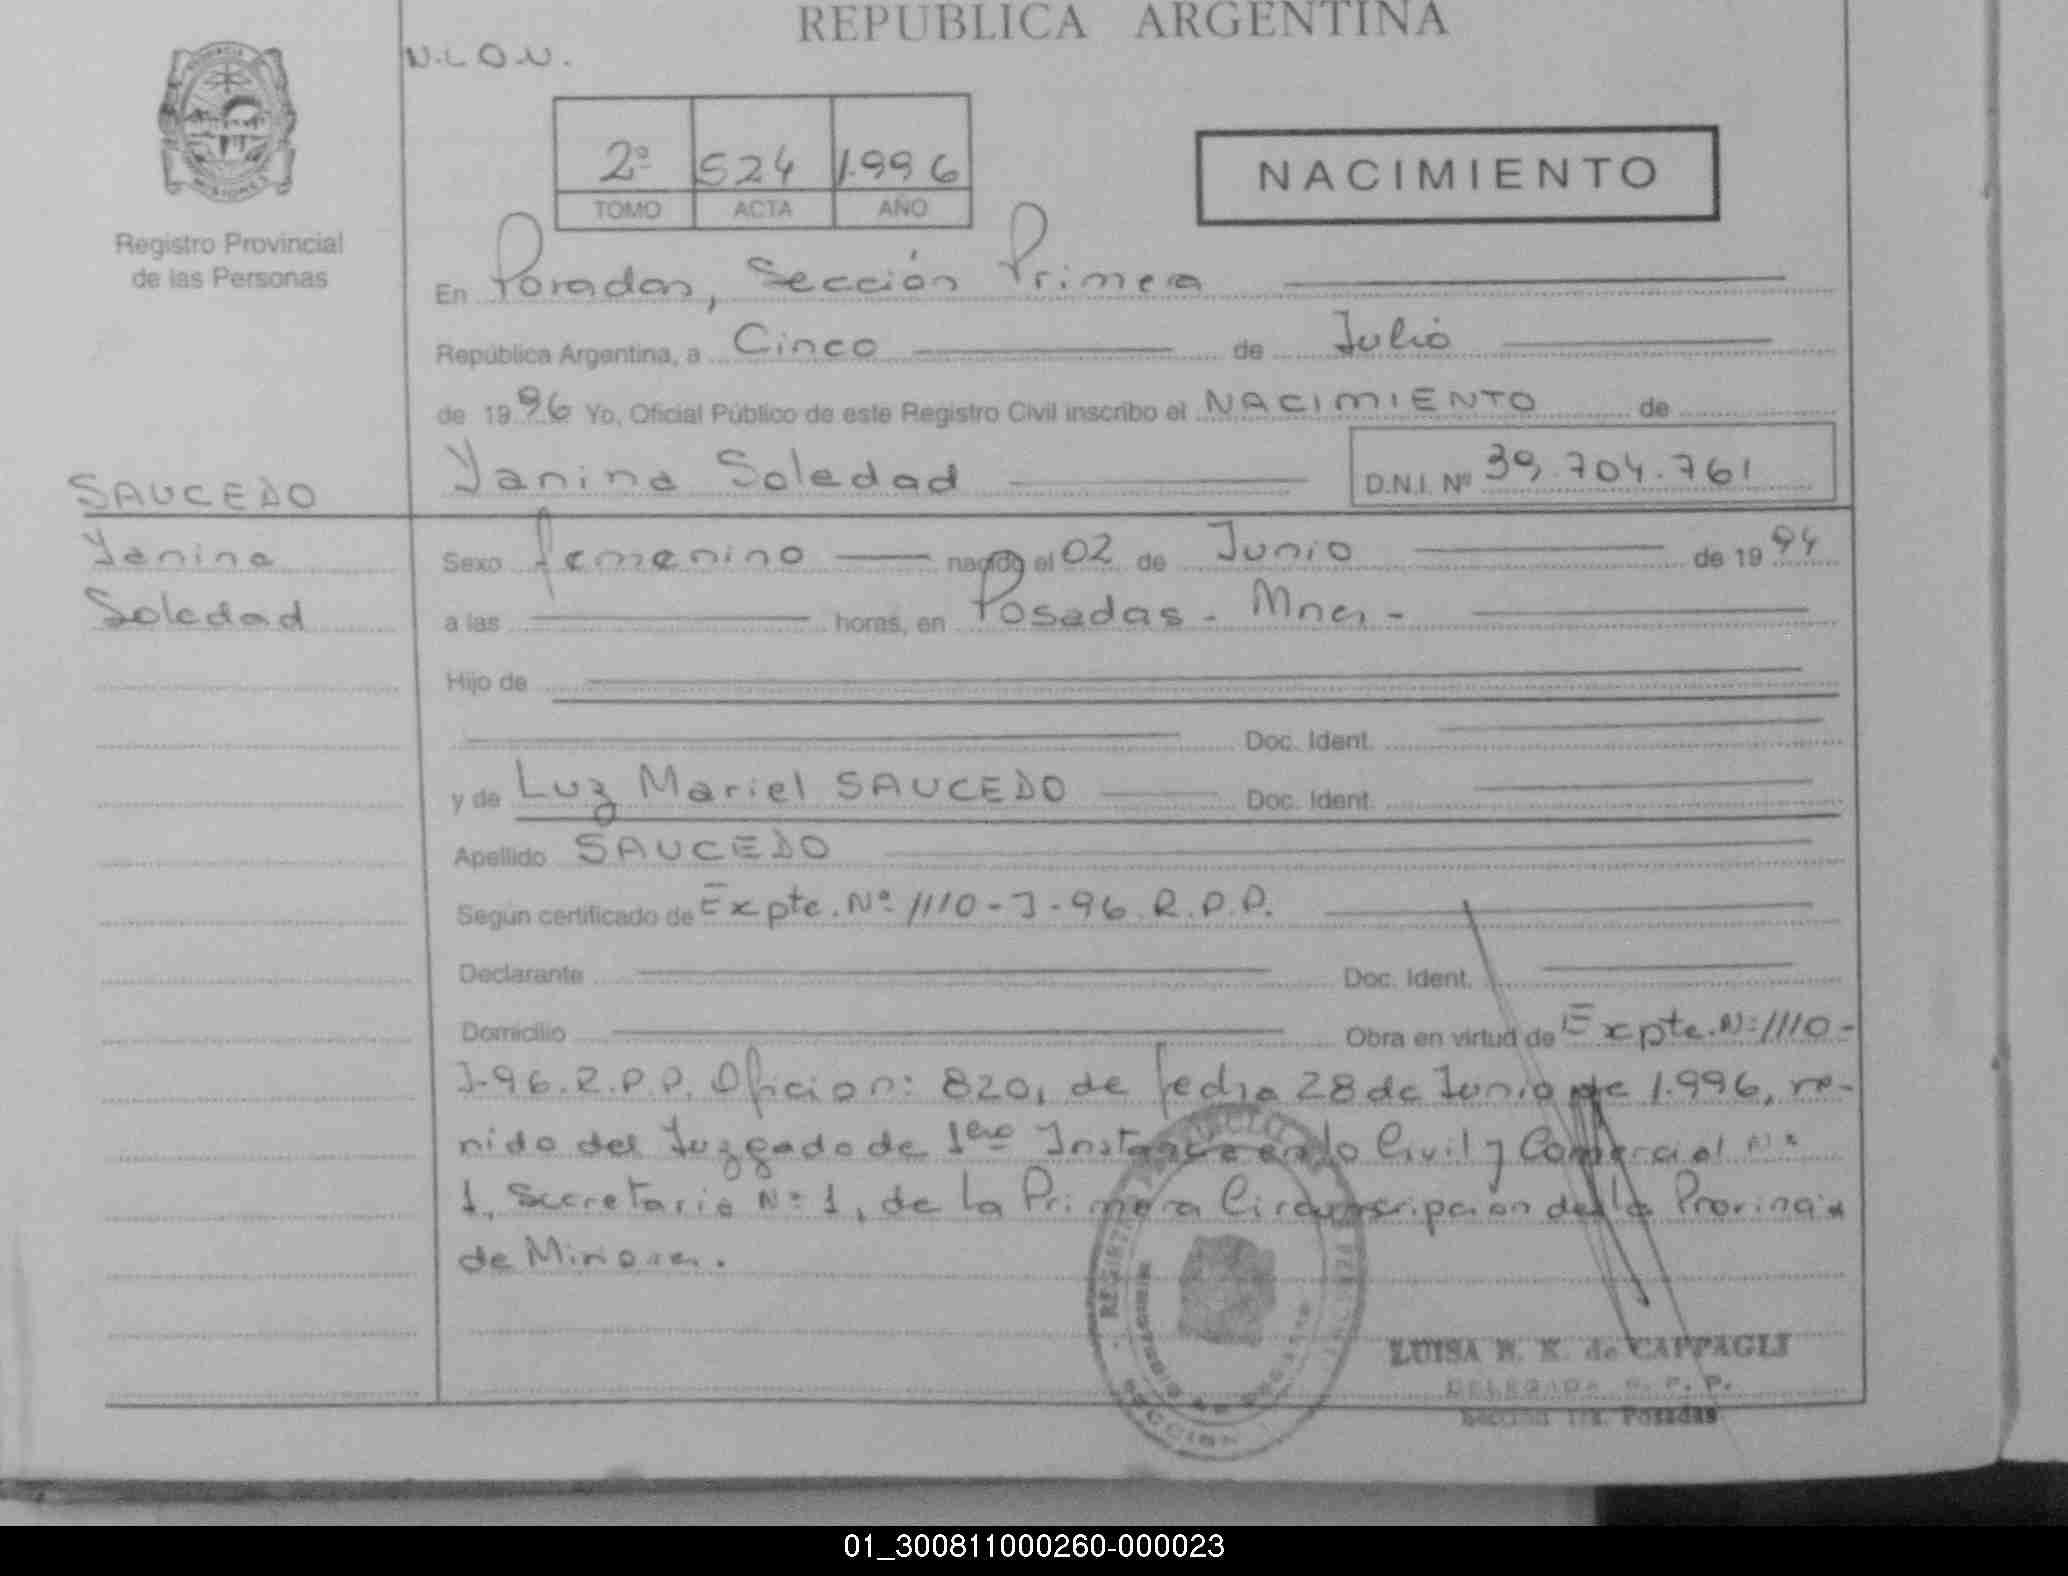 REPUBLICA ARGENTINA
N.L.O.U.
2º 524 1.996
TOMO ACTA AÑO
NACIMIENTO
Registro Provincial
de las Personas
En Posadas, Sección Primera
República Argentina, a Cinco de Julio
de 1996 Yo, Oficial Público de este Registro Civil inscribo el NACIMIENTO de
Yanina Soledad D.N.I. Nº 39.704.761
SAUCEDO
Yanina
Soledad
Sexo femenino nacido el 02 de Junio de 1994
a las horas, en Posadas - Mnes -
Hijo de
Doc. Ident.
y de Luz Mariel SAUCEDO Doc. Ident.
Apellido SAUCEDO
Según certificado de Expte. Nº 1110-J-96 R.P.P.
Declarante Doc. Ident.
Domicilio Obra en virtud de Expte. Nº 1110-
J-96.R.P.P. Oficio n: 820, de fecha 28 de Junio de 1.996, ve-
nido del Juzgado de 1era Instancia en lo Civil y Comercial Nº
1, Secretaria Nº 1, de la Primera Circunscripción de la Provincia
de Misiones.
LUISA de CAPPAGLI
DELEGADA R. P. P.
Sección 1ra. Posadas
SECCION
01_300811000260-000023